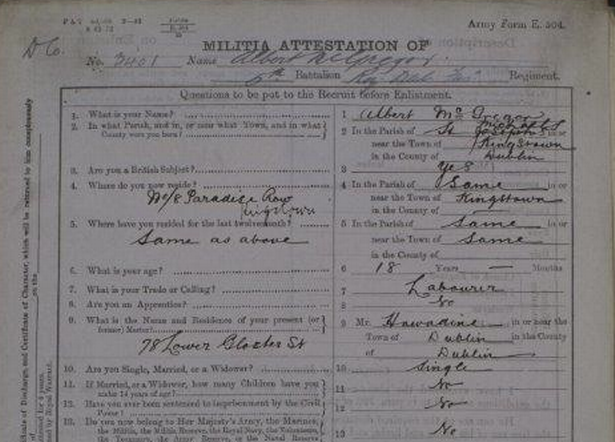 Army Form E. 504.
D Co.
MILITIA ATTESTATION OF
No. 3401 Name Albert McGregor
6th Battalion Roy. Dub. Fus. Regiment.
Questions to be put to the Recruit before Enlistment.
1. What is your Name? 1 Albert McGregor
2. In what Parish, and in, or near what Town, and in what County were you born? 2 In the Parish of St Michaels in or
near the Town of Kingstown
in the County of Dublin
3. Are you a British Subject? 3 Yes
4. Where do you now reside? 4 In the Parish of Same in or
No/8 Paradise Row near the Town of Kingstown
Kingstown in the County of
5. Where have you resided for the last twelve month? 5 In the Parish of Same in or
Same as above near the Town of Same
in the County of
6. What is your age? 6 18 Years — Months
7. What is your Trade or Calling? 7 Labourer
8. Are you an Apprentice? 8 No
9. What is the Name and Residence of your present (or former) Master? 9 Mr. Hawadine in or near the
78 Lower Glocter St Town of Dublin in the County
of Dublin
10. Are you Single, Married, or a Widower? 10 Single
11. If Married, or a Widower, how many Children have you under 14 years of age? 11 No
12. Have you ever been sentenced to imprisonment by the Civil Power? 12 No
13. Do you now belong to Her Majesty's Army, the Marines, 13 No
the Militia, the Militia Reserve, the Royal Navy, the Volunteers,
the Yeomanry, the Army Reserve, or the Naval Reserve